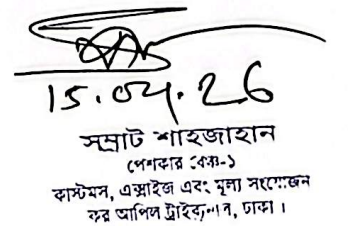 15.04.26
সম্রাট শাহজাহান
পেশকার বেঞ্চ-১
কাস্টমস, এক্সাইজ এবং মূল্য সংযোজন
কর আপিল ট্রাইব্যুনাল, ঢাকা।